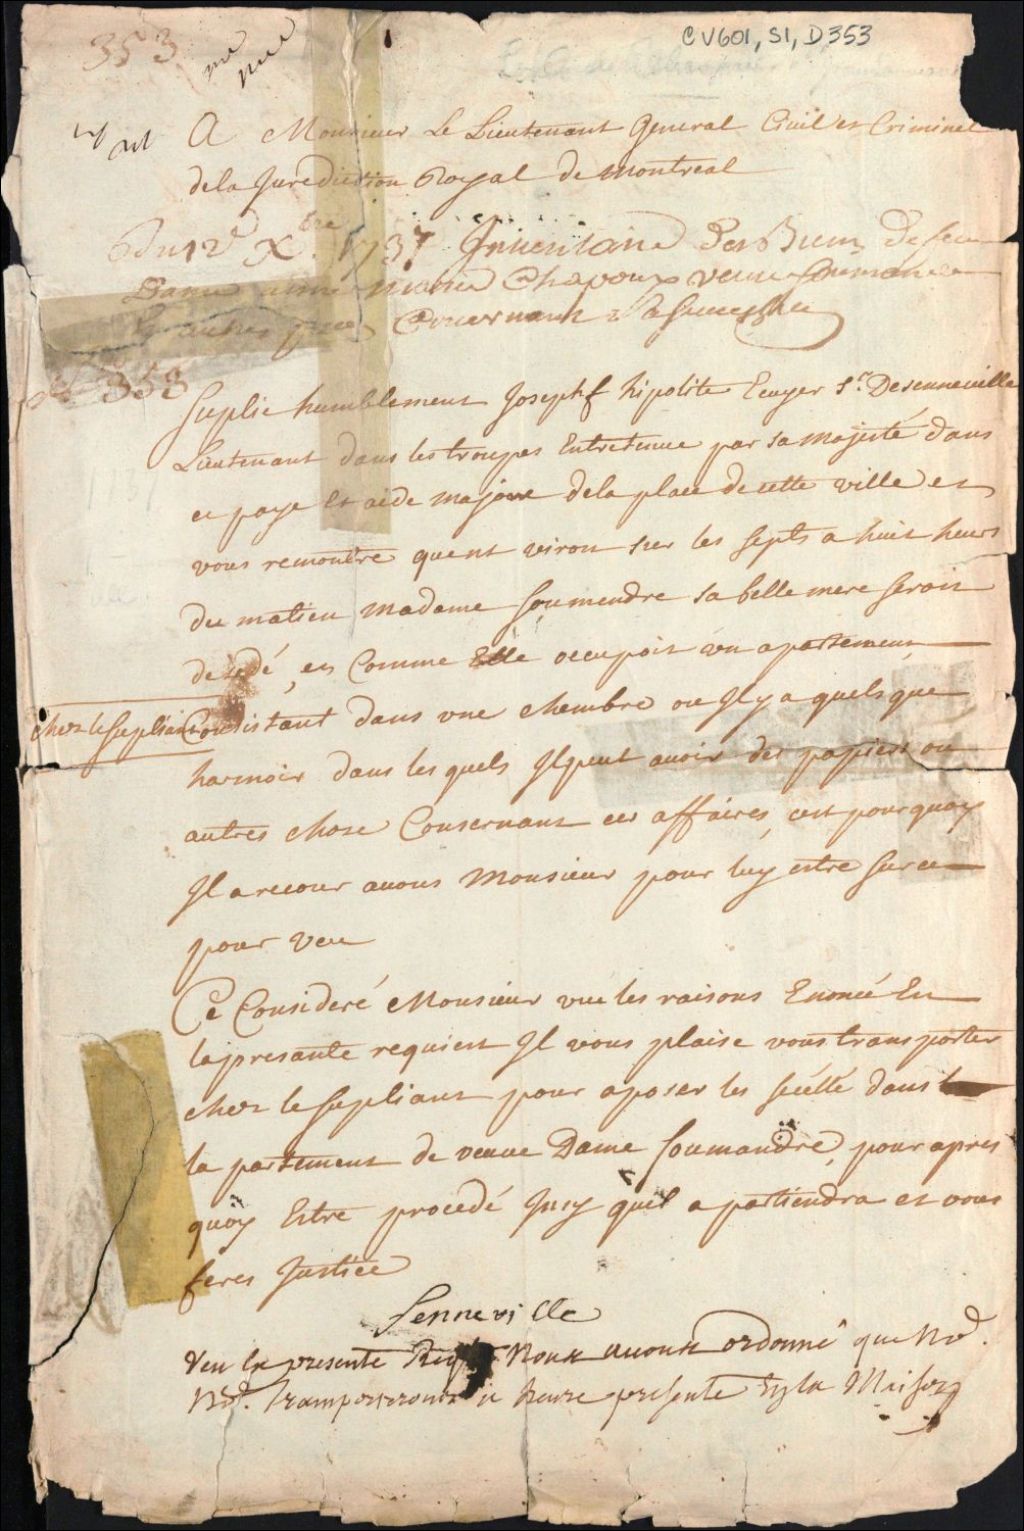 CV601, S1, D353
353
A Monsieur Le Lieutenant General Civil et Criminel
de la Jurediction Royal de Montreal
Du 12e Xbre 1737 Inventaire des Biens de feue
Dame anne marie Chapoux veuve Soumande
& autres Concernant La Succession
353
Suplie humblement Joseph hipolite Ecuyer Sr. Desenneville
Lieutenant dans les troupes Entretenue par sa majesté dans
ce paye Et aide major de la place de cette ville et
vous remontre quent viron sur les septs a huit heurs
du matien Madame Soumendre sa belle mere seroit
desedé, et Comme Elle occupoit un apartement
chez le Supliant
Consistant dans une chembre ou Il y a quelsque
harmoir dans les quels Il peut avoir des papiers ou
autres chose Consernant ces affaires, cest pourquoy
Il a recour avous Monsieur pour luy estre sur ce
pour veu
Ce Consideré Monsieur vue les raisons Enoncé En
la presante requiest Il vous plaise vous transporter
chez le Supliant pour aposer les scéllé dans
la partement de veuve Dame Soumandre, pour apres
quoy Estre procedé Insy quil apartiendra et vous
feres Justice
Senneville
Veu la presente Reqte Nous avons ordonné que Nd.
Nd. transporterons a heure presente En la Maison